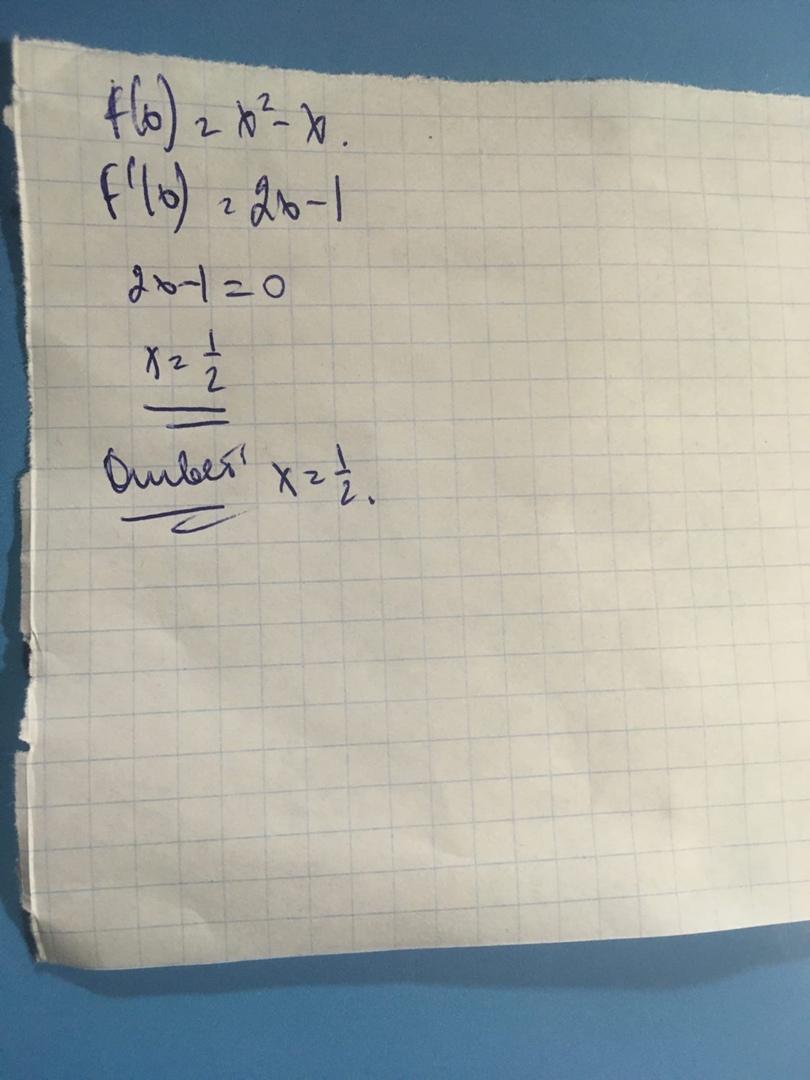 f(x) = x² - x.
f'(x) = 2x - 1
2x - 1 = 0
x = 1/2
Ответ: x = 1/2.